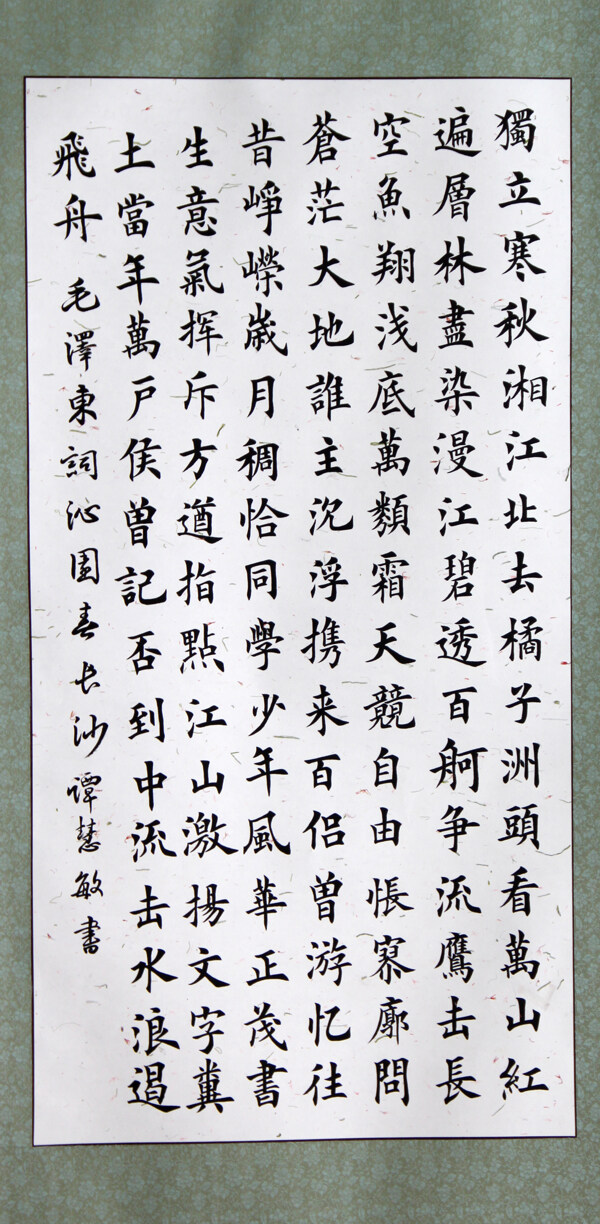 獨立寒秋湘江北去橘子洲頭看萬山紅
遍層林盡染漫江碧透百舸争流鷹击長
空魚翔浅底萬類霜天競自由悵寥廓問
蒼茫大地誰主沉浮携来百侣曾游忆往
昔崢嶸歲月稠恰同學少年風華正茂書
生意氣挥斥方遒指點江山激揚文字糞
土當年萬戶侯曾記否到中流击水浪遏
飛舟 毛澤東詞沁園春长沙譚慧敏書